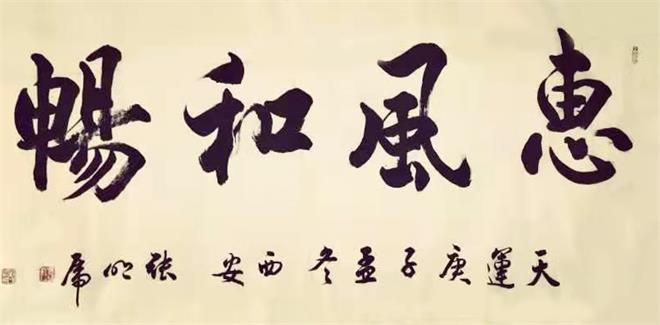 惠風和暢
天運庚子孟冬西安 張心虎